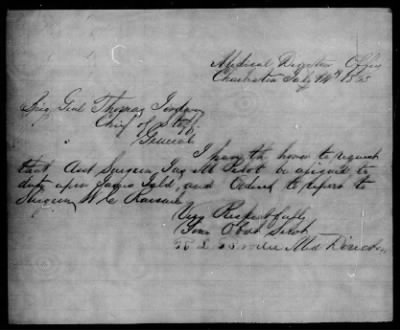 Medical Director Office
Charleston July 14th 1863
Brig Genl Thomas Jordan
Chief of Staff
General
I have the honor to request
that Asst Surgeon M be assigned to
duty upon James Isld, and Ordered to report to
Surgeon
Very Respectfully
Your Obdt Servt
Med Director